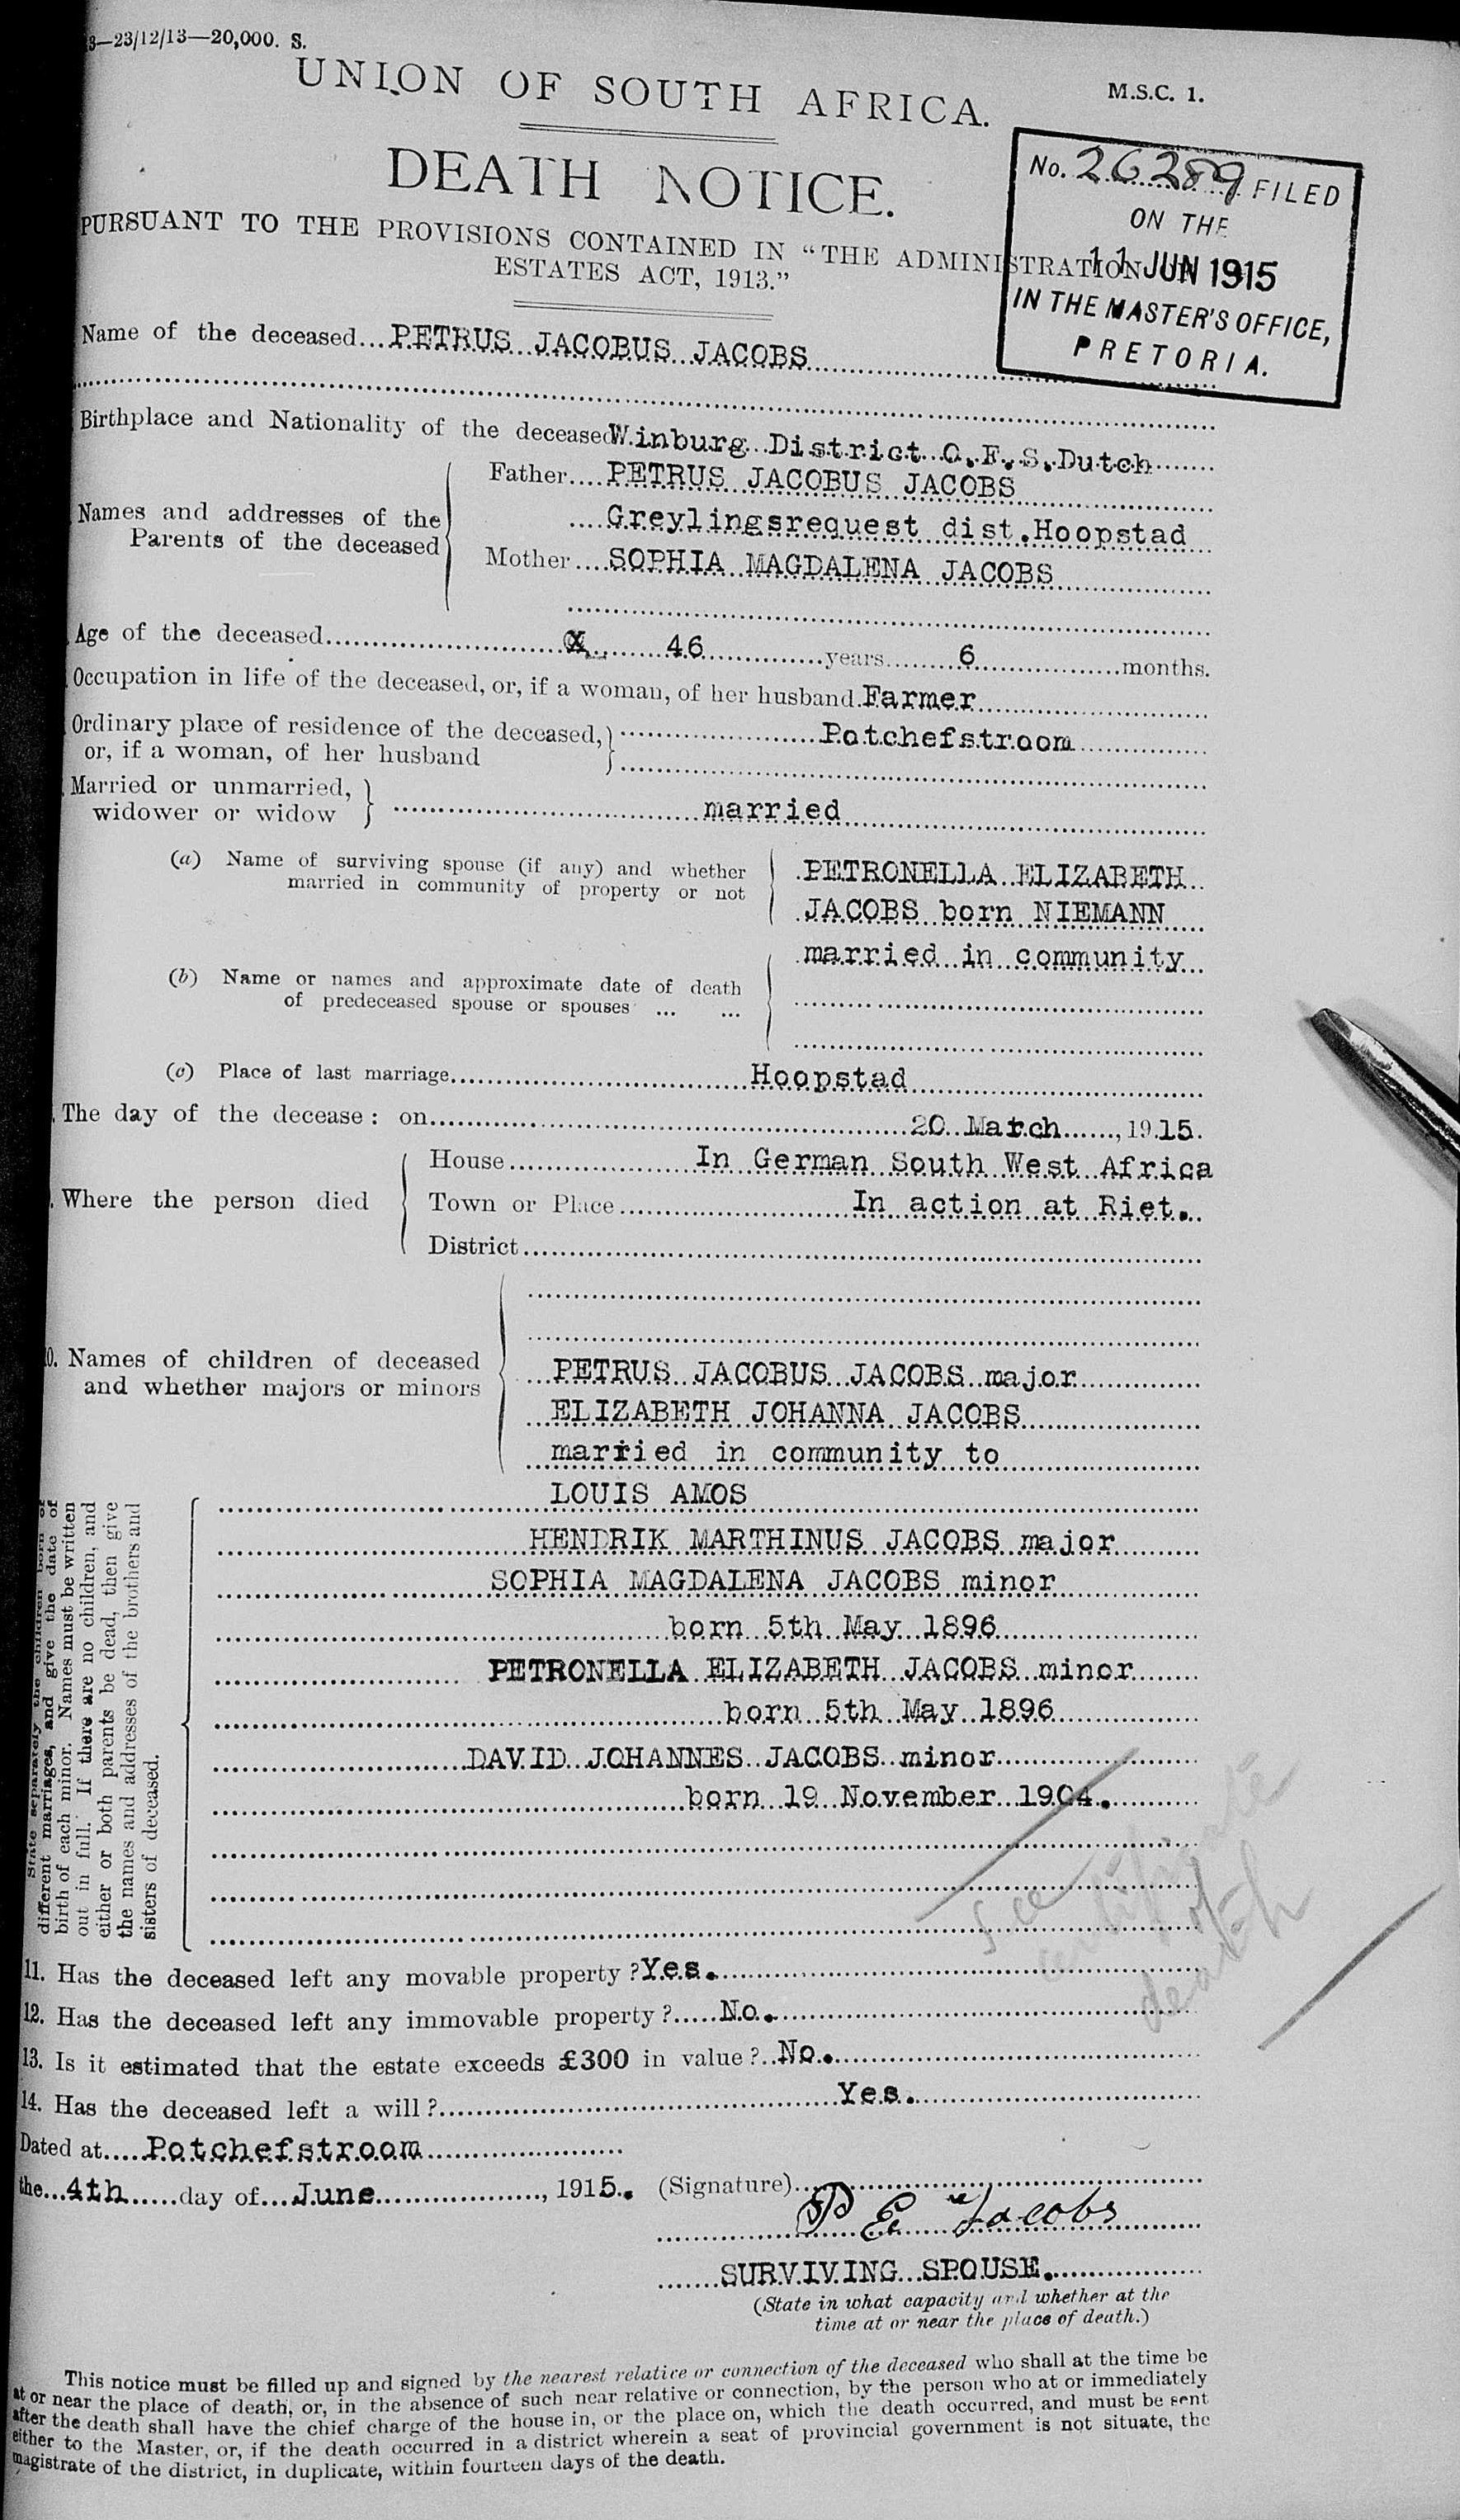 8—23/12/13—20,000. S.
UNION OF SOUTH AFRICA.
M.S.C. 1.
DEATH NOTICE.
No. 26289 FILED
ON THE
11 JUN 1915
IN THE MASTER'S OFFICE,
PRETORIA.
PURSUANT TO THE PROVISIONS CONTAINED IN “THE ADMINISTRATION
ESTATES ACT, 1913.”
Name of the deceased PETRUS JACOBUS JACOBS
Birthplace and Nationality of the deceased Winburg District O.F.S. Dutch
Names and addresses of the
Parents of the deceased
Father PETRUS JACOBUS JACOBS
Greylingsrequest dist. Hoopstad
Mother SOPHIA MAGDALENA JACOBS
Age of the deceased 46 years 6 months.
Occupation in life of the deceased, or, if a woman, of her husband. Farmer
Ordinary place of residence of the deceased,
or, if a woman, of her husband
Potchefstroom
Married or unmarried,
widower or widow
married
(a) Name of surviving spouse (if any) and whether
married in community of property or not
PETRONELLA ELIZABETH
JACOBS born NIEMANN
married in community
(b) Name or names and approximate date of death
of predeceased spouse or spouses ... ...
(c) Place of last marriage Hoopstad
The day of the decease: on 20 March, 1915.
Where the person died
House In German South West Africa
Town or Place In action at Riet.
District
10. Names of children of deceased
and whether majors or minors
PETRUS JACOBUS JACOBS major
ELIZABETH JOHANNA JACOBS
married in community to
LOUIS AMOS
HENDRIK MARTHINUS JACOBS major
SOPHIA MAGDALENA JACOBS minor
born 5th May 1896
PETRONELLA ELIZABETH JACOBS minor
born 5th May 1896
DAVID JOHANNES JACOBS minor
born 19 November 1904.
State separately the children born of
different marriages, and give the date of
birth of each minor. Names must be written
out in full. If there are no children, and
either or both parents be dead, then give
the names and addresses of the brothers and
sisters of deceased.
See
certificate
death
11. Has the deceased left any movable property? Yes.
12. Has the deceased left any immovable property? No.
13. Is it estimated that the estate exceeds £300 in value? No.
14. Has the deceased left a will? Yes.
Dated at Potchefstroom
the 4th day of June, 1915. (Signature)
P E Jacobs
SURVIVING SPOUSE.
(State in what capacity and whether at the
time at or near the place of death.)
This notice must be filled up and signed by the nearest relative or connection of the deceased who shall at the time be
at or near the place of death, or, in the absence of such near relative or connection, by the person who at or immediately
after the death shall have the chief charge of the house in, or the place on, which the death occurred, and must be sent
either to the Master, or, if the death occurred in a district wherein a seat of provincial government is not situate, the
magistrate of the district, in duplicate, within fourteen days of the death.